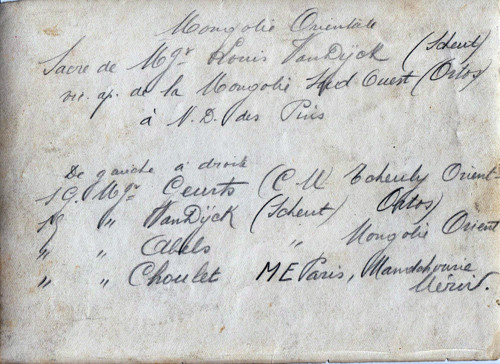 Mongolie Orientale
Sacre de Mgr Louis VanDÿck (Scheut)
vic. ap. de la Mongolie Sud Ouest (Ortos)
à N. D. des Pins
De gauche à droite
S.G. Mgr Ceurts (C M Tcheuly Orient
SG " VanDÿck (Scheut) Ortos)
" " Abels " Mongolie Orient
" " Choulet M E Paris, Mandchourie
Mérid.